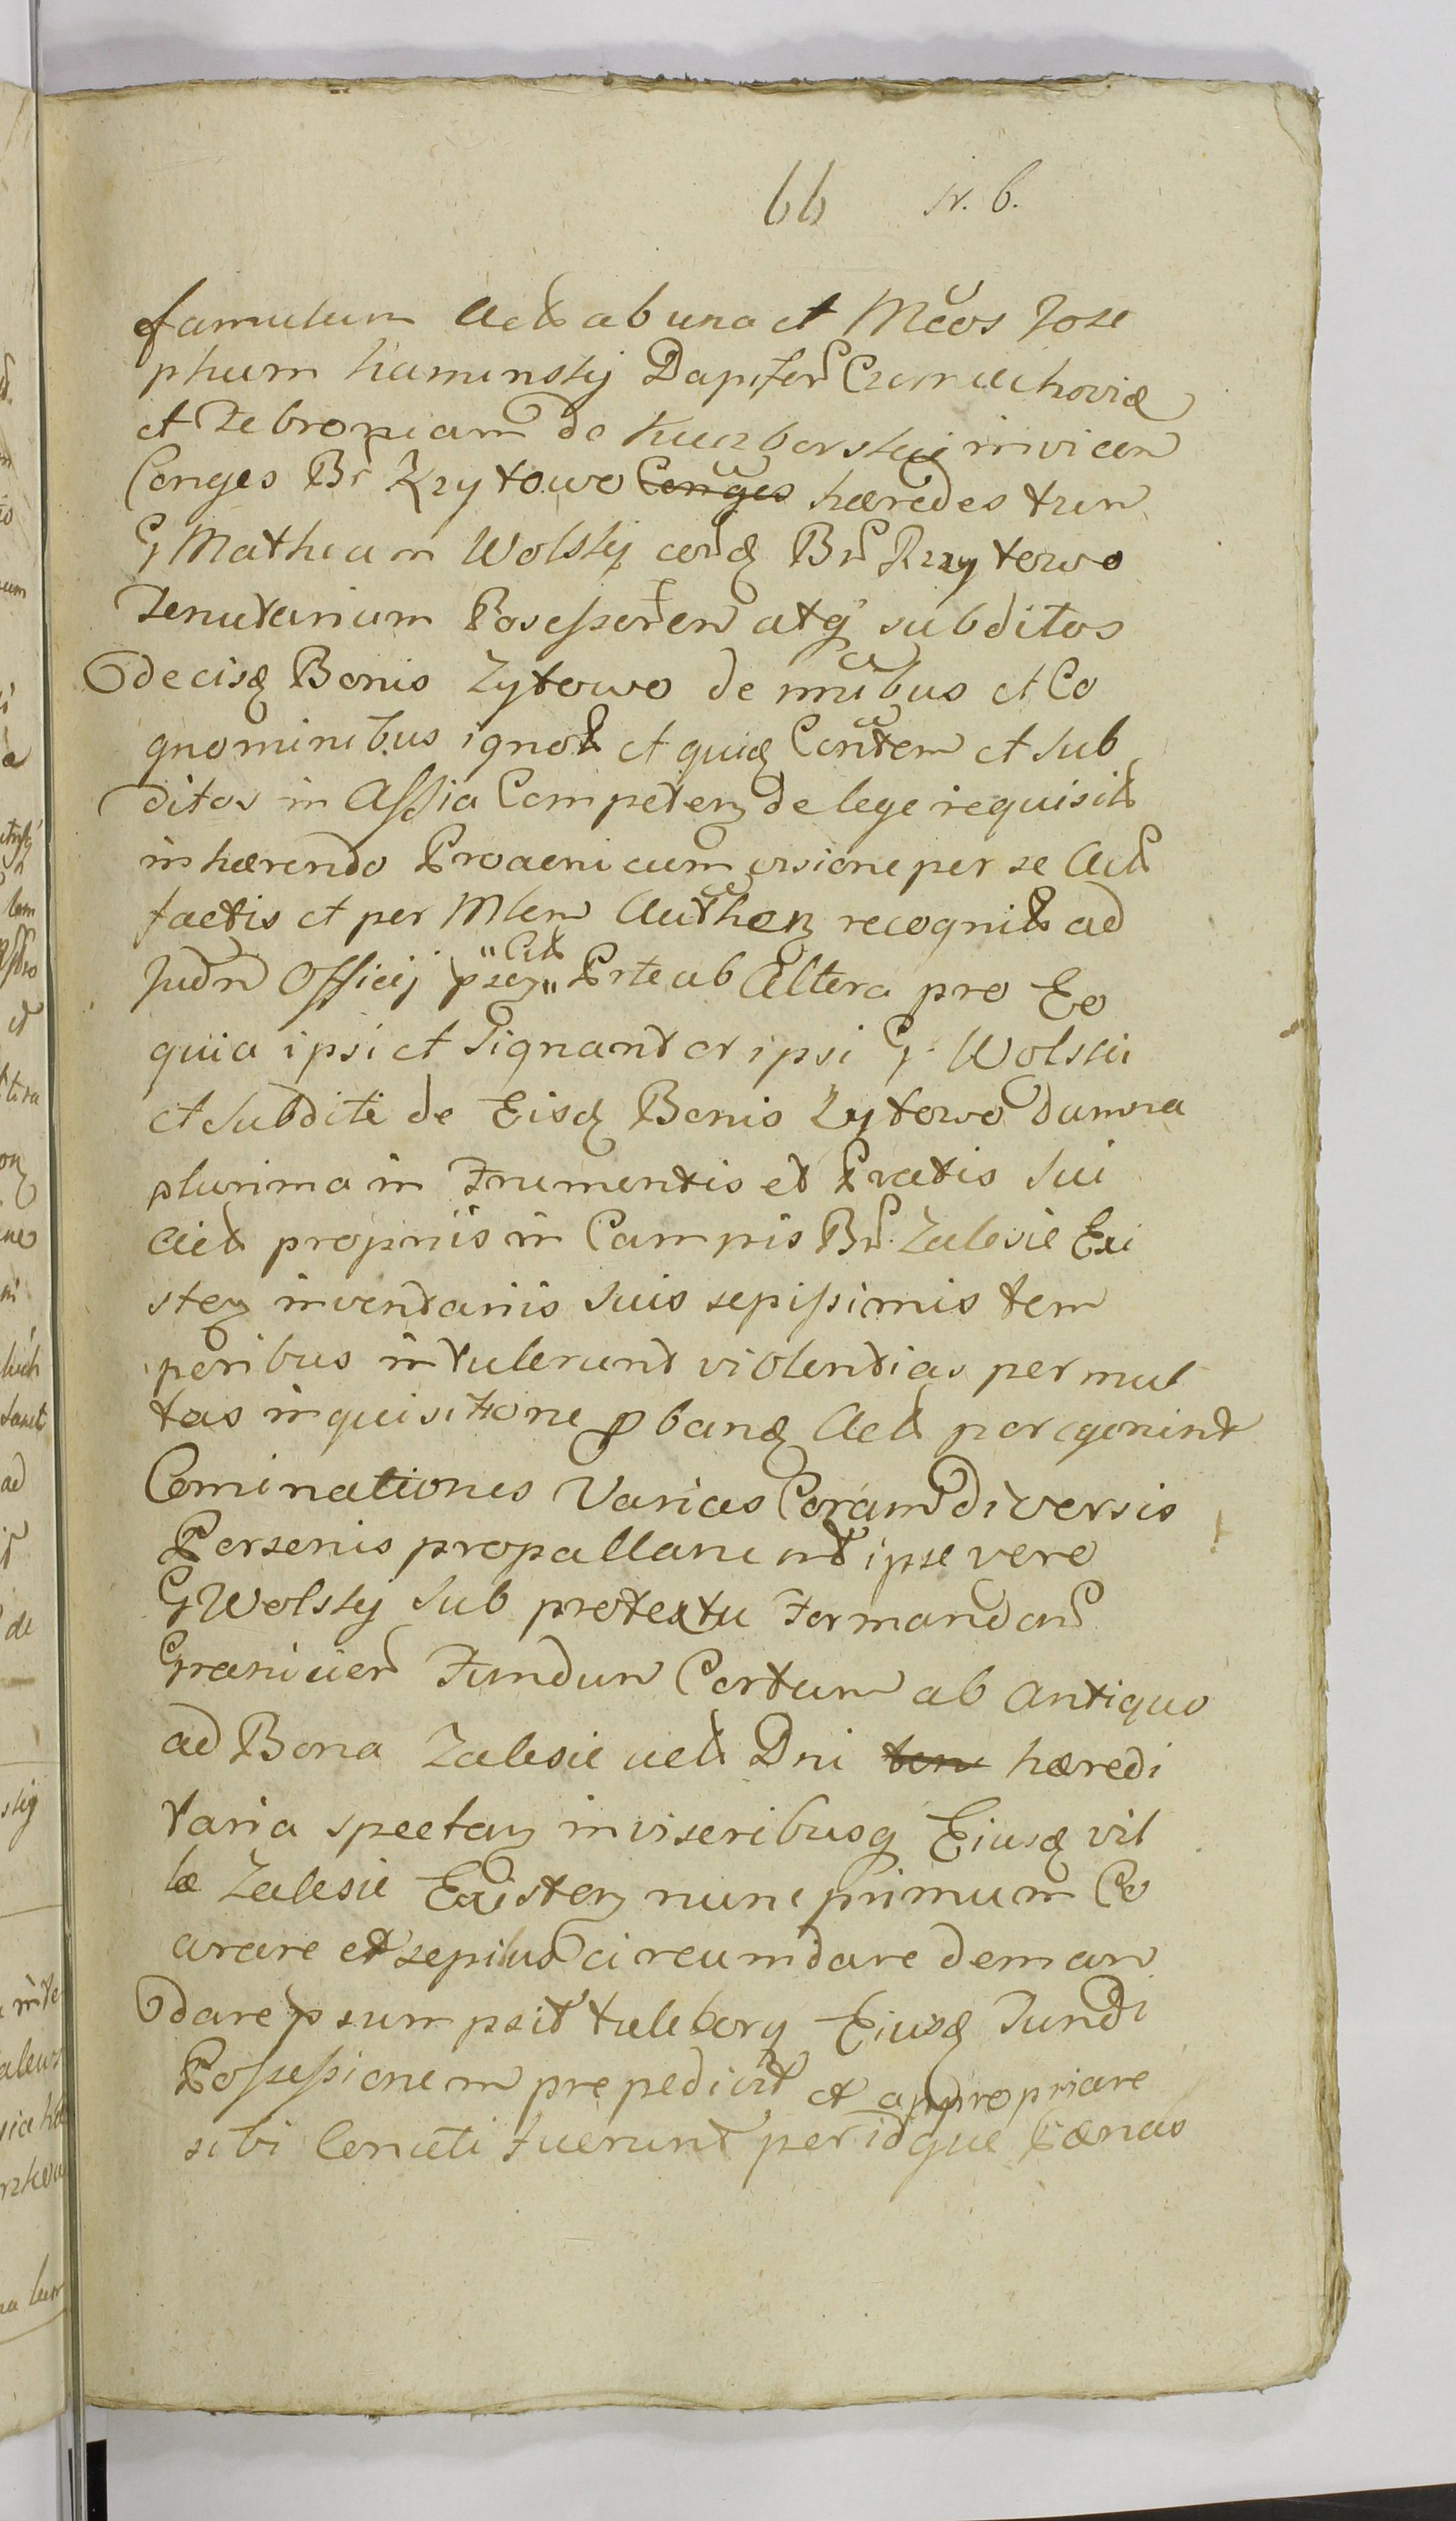 66 N. 6.
famulum Actab una et Mcos Jose
phum Kaminsky Dapiferũ Czerniechoviæ
et Zebroniam de Kuczborskie invicem
Conges Br Rzytowo Conges hæredes tum
G Mathiam Wolsky eorūdē Br Rzytowo
Tenutarium Posessorem atq subditos
de eisdē Bonis Zytowo de nnibus et Co
gnominibus ignot et quidē Contem et sub
ditos in Assia Competen de lege requisit
inhærendo cum visione per se Act
factis et per Mlem Authen recognit ad
Judm Officij psen " Act " Prte ab Altera pro Eo
quia ipsi et signantor ipsi G Wolski
et Subditi de Eisdē Bonis Zytowo Damna
plurima in Frumentis et Pratis sui
Act propriis in Campis Br Zalesie Exi
sten inventariis suis sepissimis tem
poribus intulerunt violentias per mul
tas inquisitione pbandē Act peregerunt
Cominationes Varias Coram diversis
Personis propallarunt ipse vero
G Wolsky sub protextu Formandor
Granicier Fundum Certum ab antiquo
ad Bona Zalesie Act Dni ten hæredi
taria spectan inviseribusq Eiusdē vil
læ Zalesie Existen nunc primum Ex
arare et sepibus circumdare deman
dare psumpsit Eiusdē Fundi
Possessionem prepedivit et appropriare
sibi Conati Fuerunt per idque Pænas